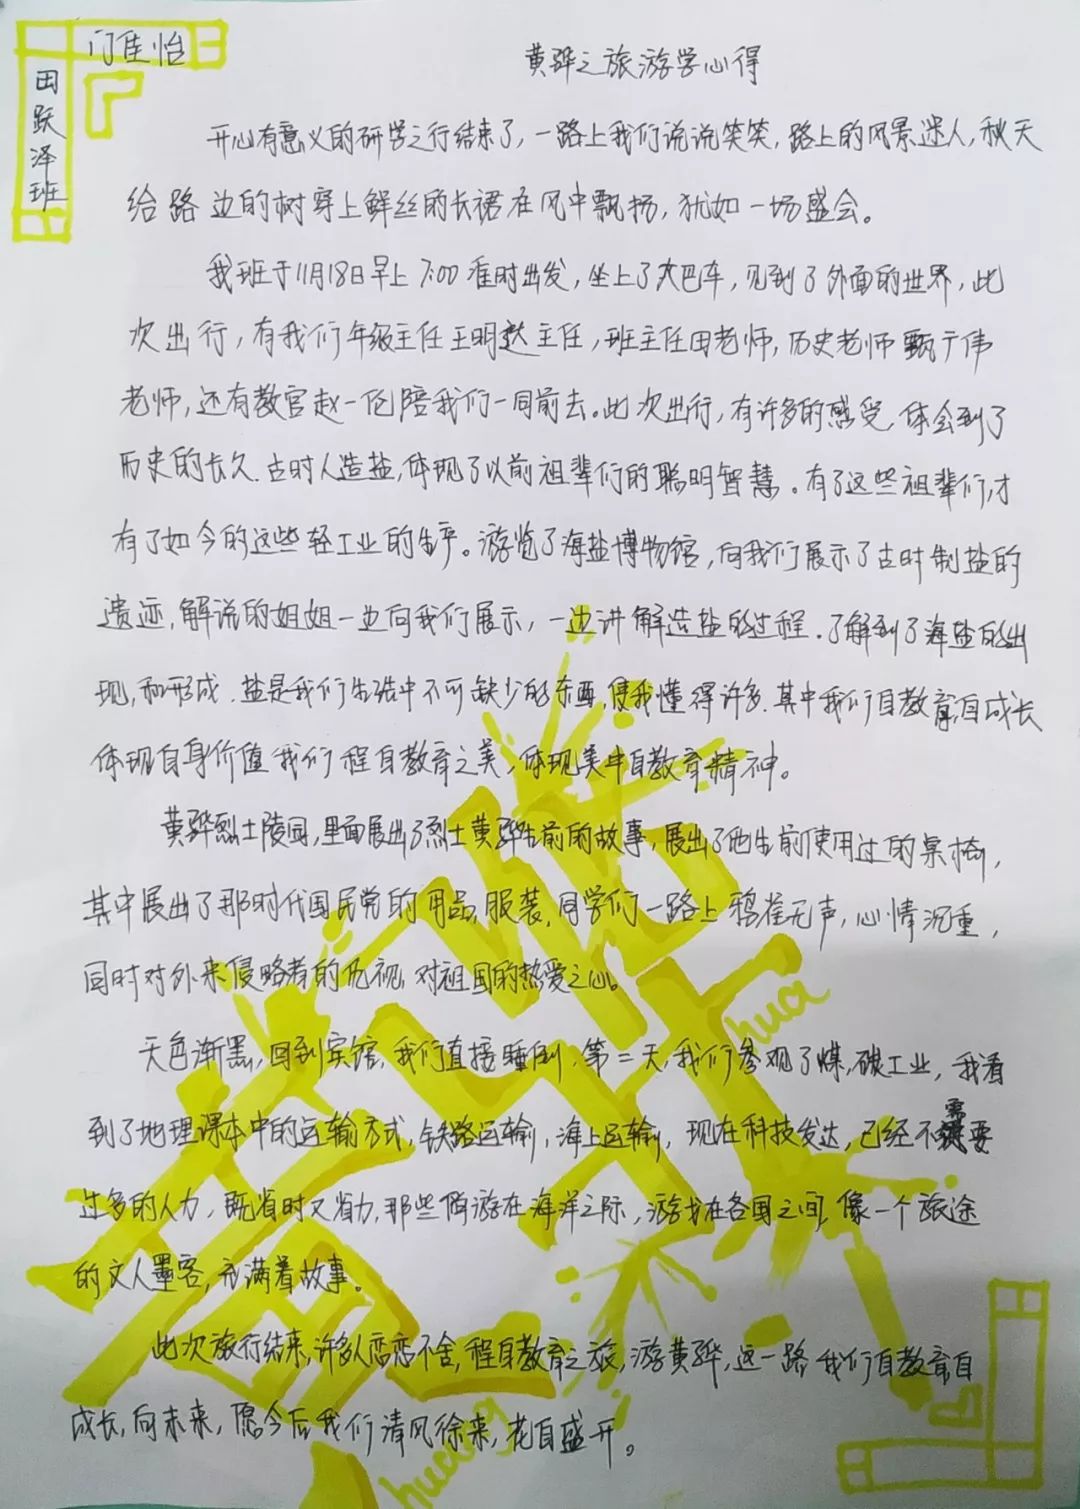 门佳怡
田跃泽班
黄骅之旅游学心得
开心有意义的研学之行结束了，一路上我们说说笑笑，路上的风景迷人，秋天
给路边的树穿上鲜丝的长裙在风中飘扬，犹如一场盛会。
我班于11月18日早上7:00准时出发，坐上了大巴车，见到了外面的世界，此
次出行，有我们年级主任王明达主任，班主任田老师，历史老师甄于伟
老师，还有教官赵一伦陪我们一同前去。此次出行，有许多的感受，体会到了
历史的长久.古时人造盐，体现了以前祖辈们的聪明智慧。有了这些祖辈们，才
有了如今的这些轻工业的生产。游览了海盐博物馆，向我们展示了古时制盐的
遗迹，解说的姐姐一边向我们展示，一边讲解造盐的过程.了解到了海盐的出
现，和形成.盐是我们生活中不可缺少的东西，使我懂得许多.其中我们自教育自成长
体现自身价值我们程自教育之美，体现美中自教育精神。
黄骅烈士陵园，里面展出了烈士黄骅生前的故事，展出了他生前使用过的桌椅，
其中展出了那时代国民党的用品，服装，同学们一路上鸦雀无声，心情沉重，
同时对外来侵略者的仇视，对祖国的热爱之心。
天色渐黑，回到宾馆，我们直接睡倒，第二天，我们参观了煤，碳工业，我看
到了地理课本中的运输方式，铁路运输，海上运输，现在科技发达，已经不需要
过多的人力，既省时又省力，那些船游在海洋之际，游戈在各国之间，像一个旅途
的文人墨客，充满着故事。
此次旅行结束，许多人恋恋不舍，程自教育之旅，游黄骅，这一路我们自教育自
成长，向未来，愿今后我们清风徐来，花自盛开。
黄骅
huang
hua